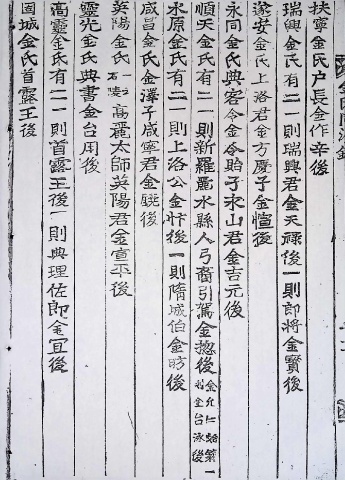 扶寧金氏戶長金作辛後
瑞興金氏有二一則瑞興君金天祿後一則郎將金寶後
遂安金氏上洛君金方慶子金愃後
永同金氏典客令金令貽子永山君金吉元後
順天金氏有二一則新羅麗水縣人弓裔引駕金摠後
水原金氏有二一則上洛公金忻後一則隋城伯金昉後
咸昌金氏金澤子咸寧君金驍後
英陽金氏高麗太師英陽君金宣平後
靈光金氏典書金台用後
高靈金氏有二一則首露王後一則典理佐郎金宜後
固城金氏首露王後